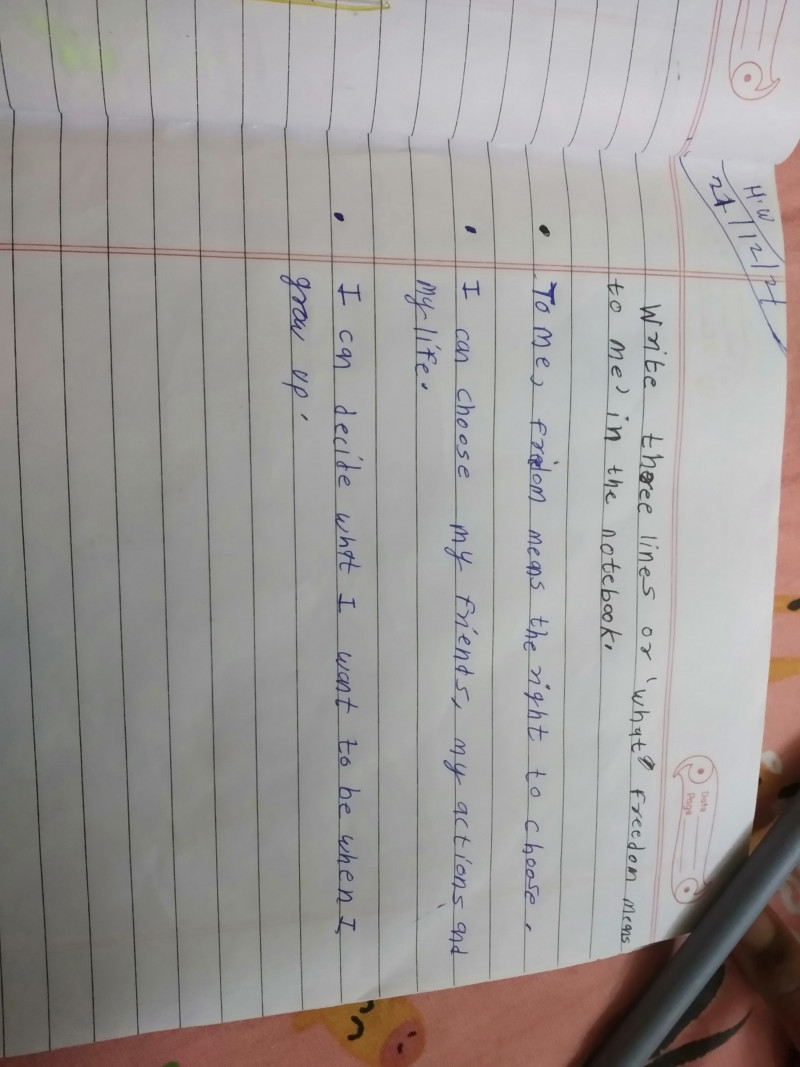 H.W
27/12/21
Date
Page
Write three lines or 'what' freedom means
to me' in the notebook.
• To me, fridom means the right to choose.
• I can choose my friends, my actions and
my life.
• I can decide what I want to be when I
grow up.